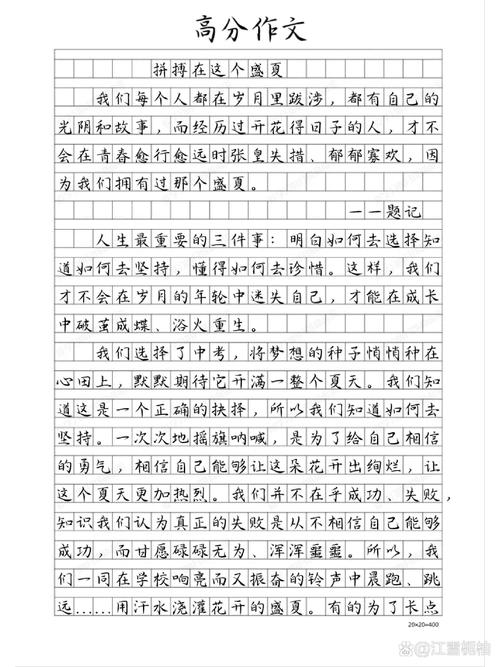 高分作文
拼搏在这个盛夏
我们每个人都在岁月里跋涉，都有自己的
光阴和故事，而经历过开花得日子的人，才不
会在青春愈行愈远时张皇失措、郁郁寡欢，因
为我们拥有过那个盛夏。
——题记
人生最重要的三件事：明白如何去选择知
道如何去坚持，懂得如何去珍惜。这样，我们
才不会在岁月的年轮中迷失自己，才能在成长
中破茧成蝶、浴火重生。
我们选择了中考，将梦想的种子悄悄种在
心田上，默默期待它开满一整个夏天。我们知
道这是一个正确的抉择，所以我们知道如何去
坚持。一次次地摇旗呐喊，是为了给自己相信
的勇气，相信自己能够让这朵花开出绚烂，让
这个夏天更加热烈。我们并不在乎成功、失败，
知识我们认为真正的失败是从不相信自己能够
成功，而甘愿碌碌无为、浑浑噩噩。所以，我
们一同在学校响亮而又振奋的铃声中晨跑、跳
远……用汗水浇灌花开的盛夏。有的为了长点
20×20=400
@江蓠栀柚